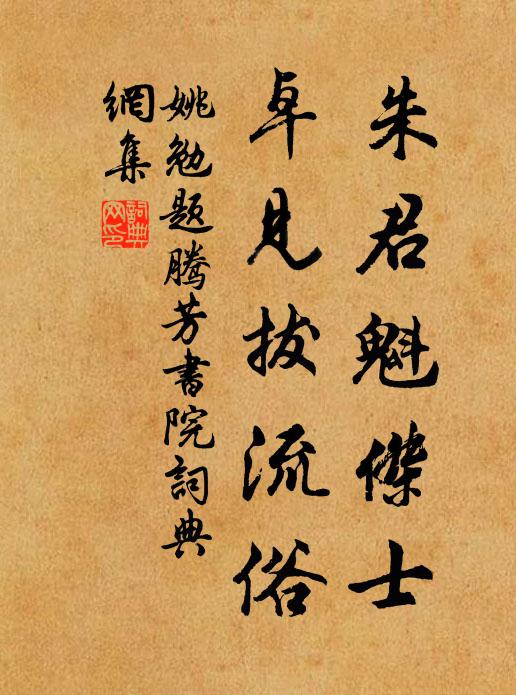 朱君魁傑士
卓見拔流俗
姚勉題騰芳書院詞典
網集
詞典
网印